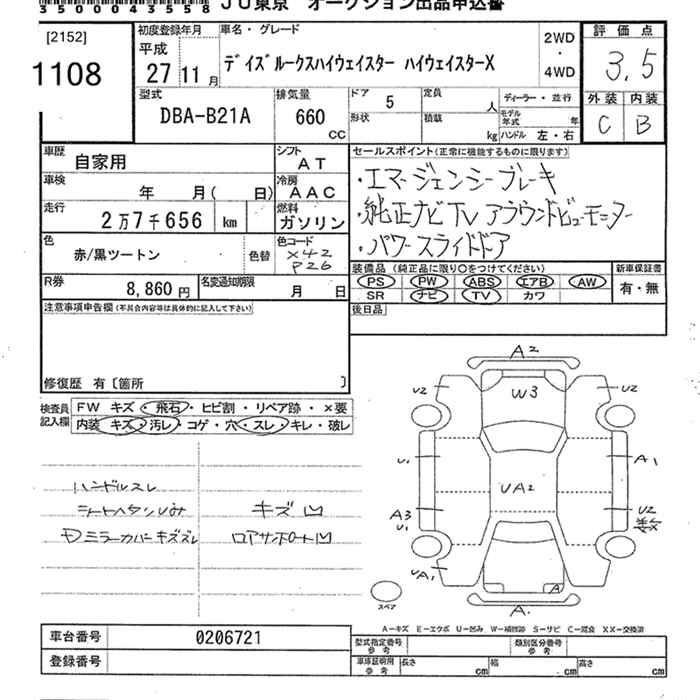 3500043558 JU東京 オークション出品申込書
[2152]
1108
初度登録年月
平成
27 11 月
車名・グレード
デイズルークスハイウェイスター ハイウェイスターX
2WD
・
4WD
評価点
3.5
外装 内装
C B
型式
DBA-B21A
排気量
660
CC
ドア
5
形状
定員
人
積載
kg
ディーラー・並行
モデル年式 年
ハンドル 左・右
車歴
自家用
シフト
AT
車検
年 月( 日)
冷房
AAC
走行
2万7千656 km
燃料
ガソリン
色
赤/黒ツートン
色替
色コード
X42
P26
R券
8,860 円
名変通知期限
月 日
セールスポイント(正常に機能するものに限ります)
・エマージェンシーブレーキ
・純正ナビTV アラウンドビューモニター
・パワースライドドア
装備品 (純正品に限り○をつけてください)
PS PW ABS エアB AW
SR ナビ TV カワ
新車保証書
有・無
後日品
注意事項申告欄(不具合内容等は具体的に記入して下さい)
修復歴 有〔箇所 〕
検査員
記入欄
FW キズ・飛石・ヒビ割・リペア跡・×要
内装 キズ・汚レ・コゲ・穴・スレ・キレ・破レ
ハンドルスレ
シートヘタシワみ
Dミラーカバーキズズレ
キズ凹
ロアサポート凹
A2
W3
U2
U2
U1
A1
UA2
A3
U1
U2
UA1
A
A.
スペア
A-キズ E-エクボ U-凹み W-補修跡 S-サビ C-腐食 XX-交換済
車台番号 0206721
登録番号
型式指定番号
参考
類別区分番号
参考
車庫証明用
参考
長さ cm 幅 cm 高さ cm